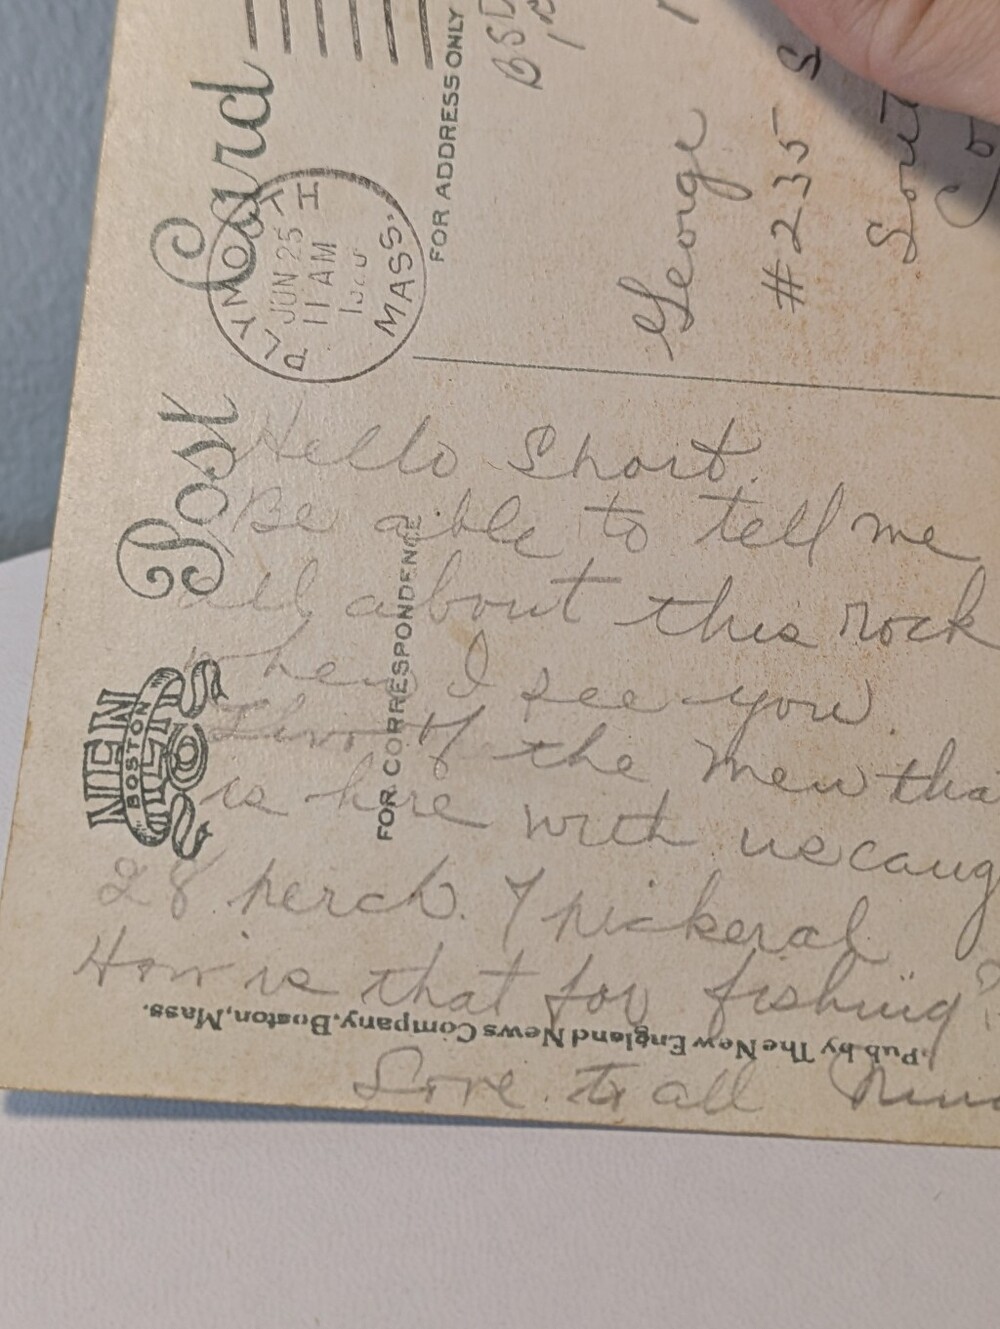 Post Card
PLYMOUTH
JUN 25
11 AM
MASS.
FOR ADDRESS ONLY
George
#235 S
FOR CORRESPONDENCE
Hello Short.
Be able to tell me
all about this rock
when I see you
Two of the men tha
is here with us caug
28 perch. 7 pickeral
How is that for fishing?
Love to all
NEN
BOSTON
Pub by The New England News Company, Boston, Mass.